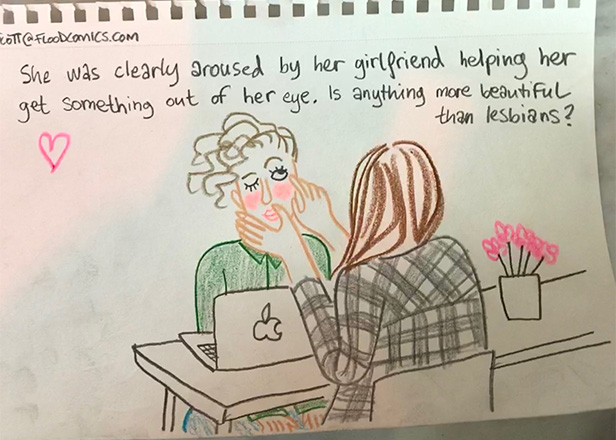 cott@Floodcomics.com
She was clearly aroused by her girlfriend helping her
get something out of her eye. Is anything more beautiful
than lesbians?